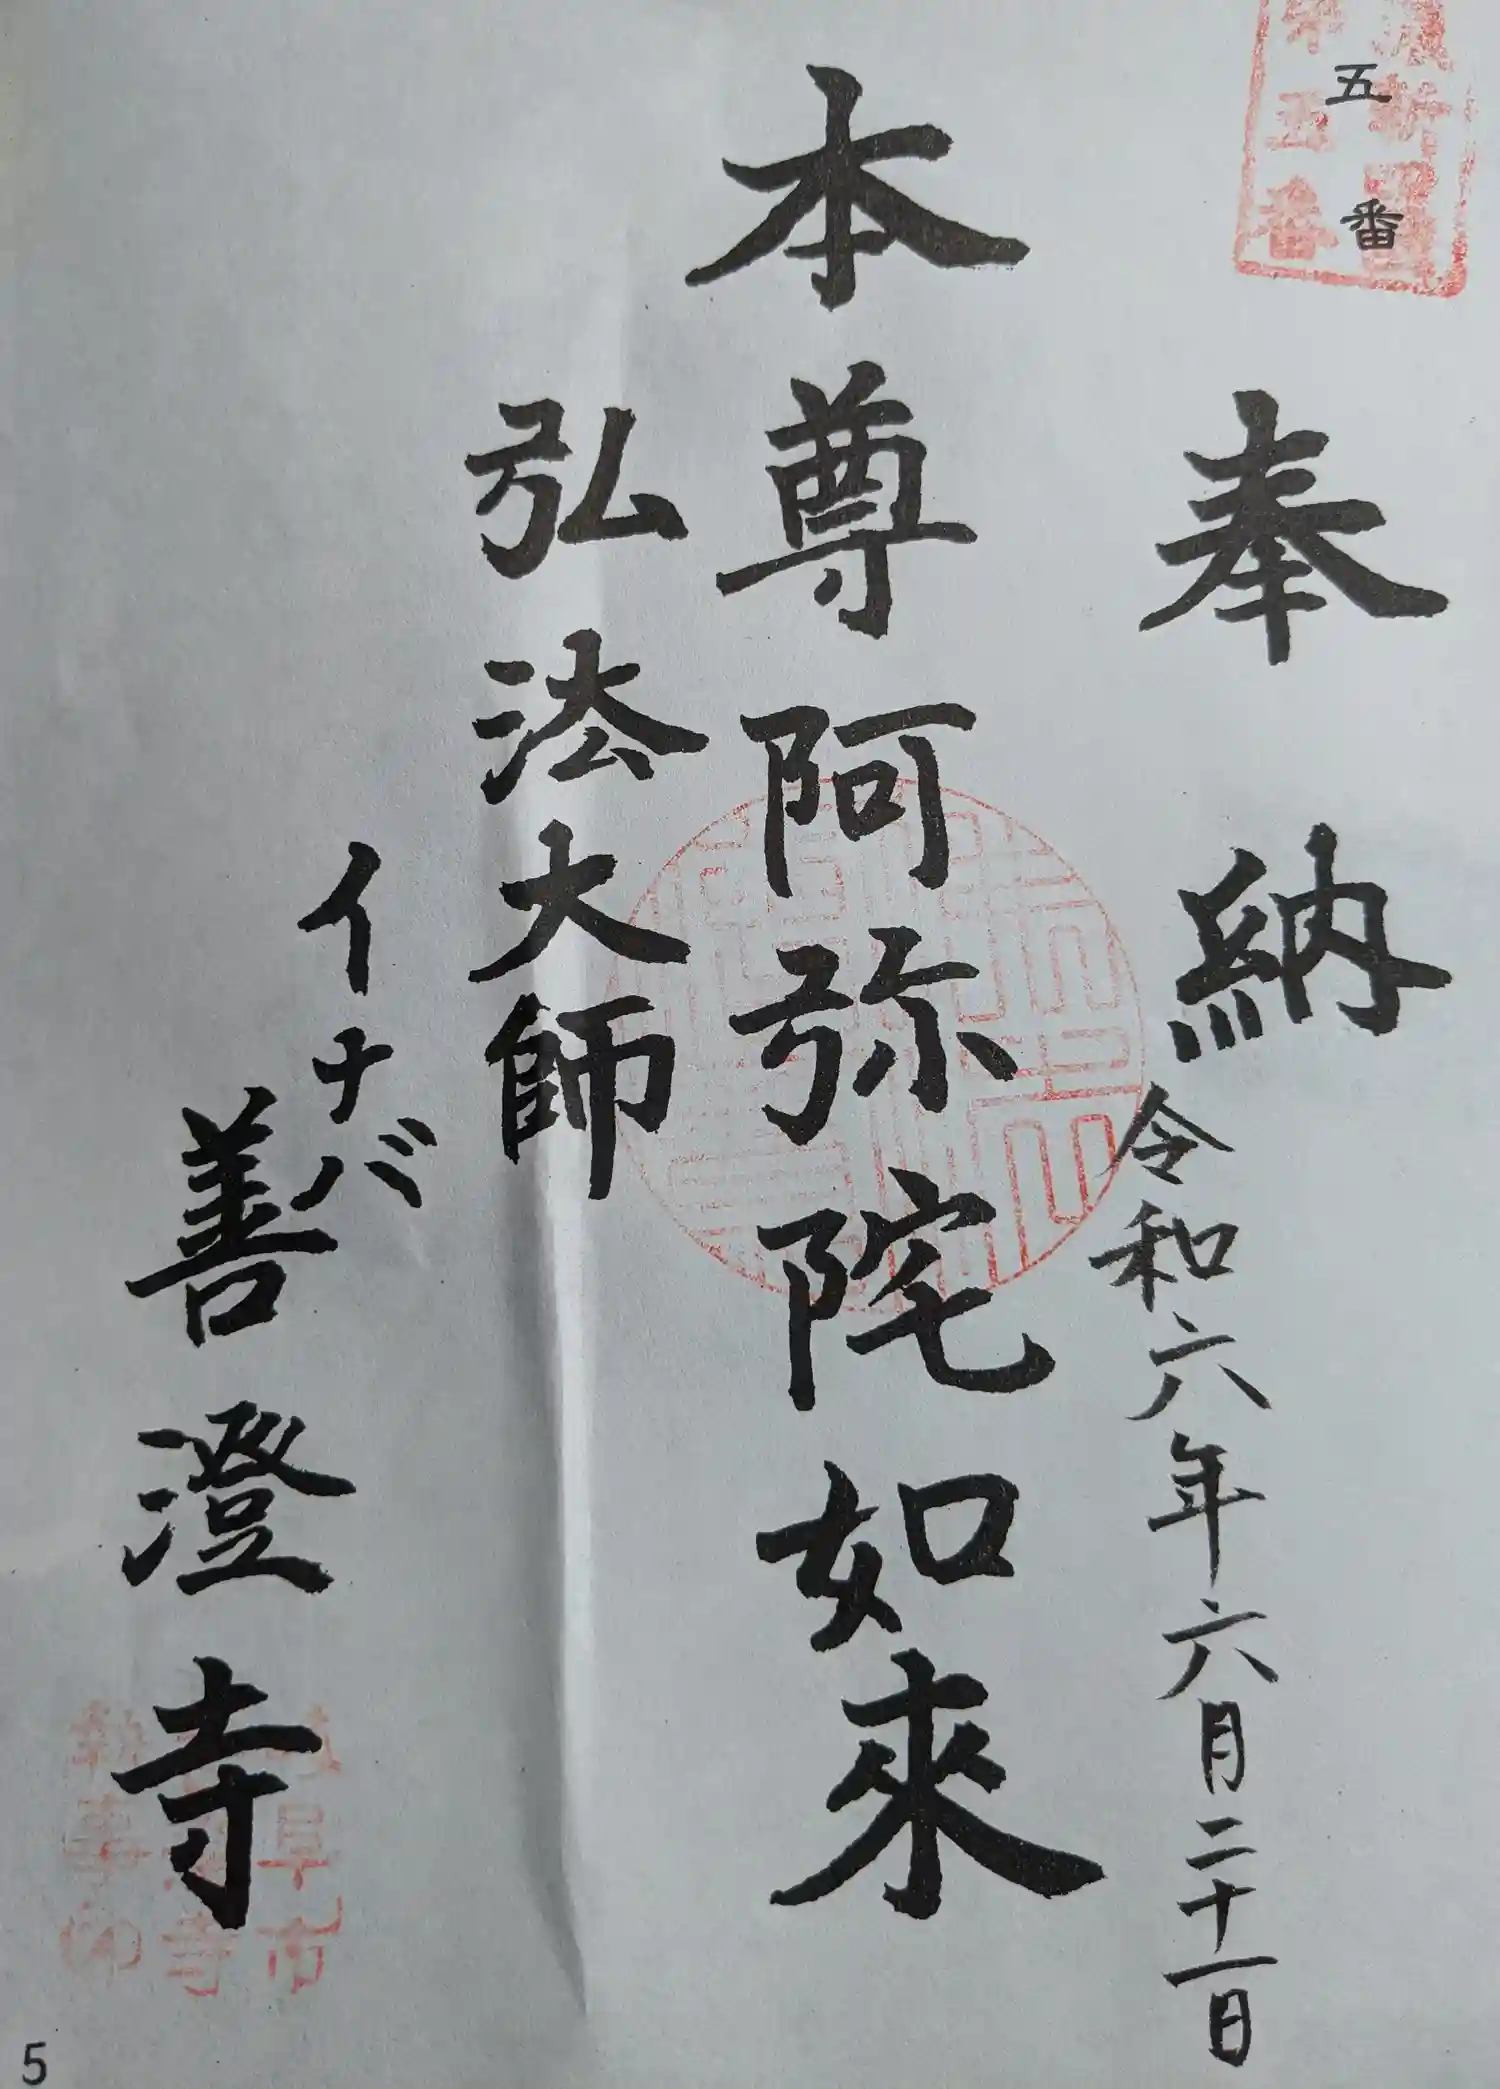 五番
奉納
令和六年六月二十一日
本尊阿弥陀如來
弘法大師
イナバ
善澄寺
5